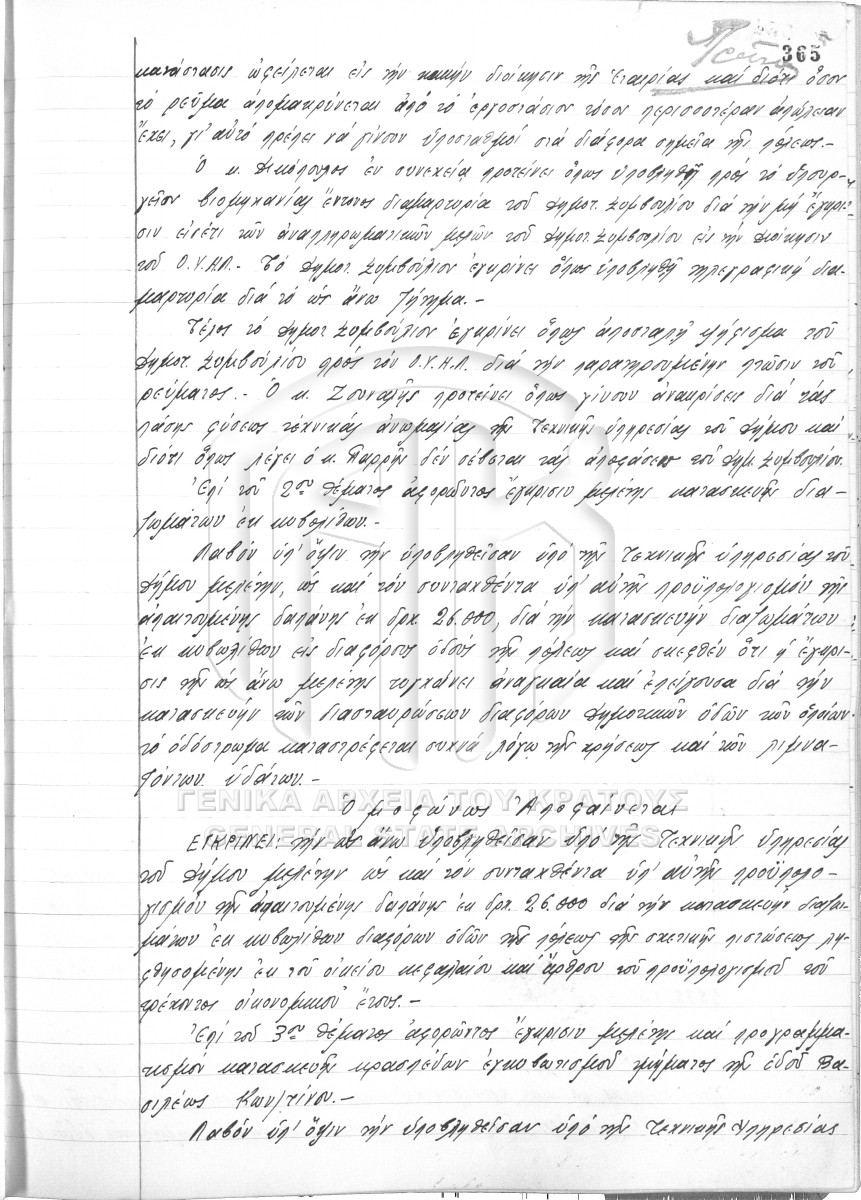 365
κατάστασις ὀφείλεται εἰς τὴν κακὴν διοίκησιν τῆς Ἑταιρίας καὶ διότι ὅσον
τὸ ρεῦμα ἀπομακρύνεται ἀπὸ τὸ ἐργοστάσιον τόσον περισσοτέραν ἀπώλειαν
ἔχει, γι' αὐτὸ πρέπει νὰ γίνουν ὑποσταθμοί στὰ διάφορα σημεῖα τῆς πόλεως.-
Ὁ κ. Δικόπουλος ἐν συνεχείᾳ προτείνει ὅπως ὑποβληθῇ πρὸς τὸ Ὑπουρ-
γεῖον Βιομηχανίας ἔντονος διαμαρτυρία τοῦ Δημοτ. Συμβουλίου διὰ τὴν μὴ ἔγκρι-
σιν εἰσέτι τῶν ἀναπληρωματικῶν μελῶν τοῦ Δημοτ. Συμβουλίου εἰς τὴν Διοίκησιν
τοῦ Ο.Υ.Η.Π.- Τὸ Δημοτ. Συμβούλιον ἐγκρίνει ὅπως ὑποβληθῇ τηλεγραφικὴ δια-
μαρτυρία διὰ τὸ ὡς ἄνω ζήτημα.-
Τέλος τὸ Δημοτ. Συμβούλιον ἐγκρίνει ὅπως ἀποσταλῇ ψήφισμα τοῦ
Δημοτ. Συμβουλίου πρὸς τὸν Ο.Υ.Η.Π. διὰ τὴν παρατηρουμένην πτῶσιν τοῦ
ρεύματος.- Ὁ κ. Ζουναλῆς προτείνει ὅπως γίνουν ἀνακρίσεις διὰ τὰς
πάσης φύσεως τεχνικὰς ἀνωμαλίας τῆς Τεχνικῆς ὑπηρεσίας τοῦ Δήμου καὶ
διότι ὅπως λέγει ὁ κ. Παρρῆς δὲν σέβεται τὰς ἀποφάσεις τοῦ Δημ. Συμβουλίου.
Ἐπὶ τοῦ 2ου θέματος ἀφορῶντος ἔγκρισιν μελέτης κατασκευῆς δια-
ζωμάτων ἐκ κυβολίθων.-
Λαβὸν ὑπ' ὄψιν τὴν ὑποβληθεῖσαν ὑπὸ τῆς Τεχνικῆς ὑπηρεσίας τοῦ
Δήμου μελέτην, ὡς καὶ τὸν συνταχθέντα ὑπ' αὐτῆς προϋπολογισμὸν τῆς
ἀπαιτουμένης δαπάνης ἐκ δρχ. 26.000, διὰ τὴν κατασκευὴν διαζωμάτων
ἐκ κυβωλίθων εἰς διαφόρους ὁδοὺς τῆς πόλεως καὶ σκεφθὲν ὅτι ἡ ἔγκρι-
σις τῆς ὡς ἄνω μελέτης τυγχάνει ἀναγκαία καὶ ἐπείγουσα διὰ τὴν
κατασκευὴν τῶν διασταυρώσεων διαφόρων δημοτικῶν ὁδῶν τῶν ὁποίων
τὸ ὁδόστρωμα καταστρέφεται συχνὰ λόγῳ τῆς χρήσεως καὶ τῶν λιμνα-
ζόντων ὑδάτων.-
ΓΕΝΙΚΑ ΑΡΧΕΙΑ ΤΟΥ ΚΡΑΤΟΥΣ
Ὁμοφώνως Ἀποφαίνεται
GENERAL STATE ARCHIVES
ΕΓΚΡΙΝΕΙ: τὴν ὡς ἄνω ὑποβληθεῖσαν ὑπὸ τῆς Τεχνικῆς ὑπηρεσίας
τοῦ Δήμου μελέτην ὡς καὶ τὸν συνταχθέντα ὑπ' αὐτῆς προϋπολο-
γισμὸν τῆς ἀπαιτουμένης δαπάνης ἐκ δρχ. 26.000 διὰ τὴν κατασκευὴν διαζω-
μάτων ἐκ κυβωλίθων διαφόρων ὁδῶν τῆς πόλεως τῆς σχετικῆς πιστώσεως λη-
φθησομένης ἐκ τοῦ οἰκείου κεφαλαίου καὶ ἄρθρου τοῦ προϋπολογισμοῦ τοῦ
τρέχοντος οἰκονομικοῦ ἔτους.-
Ἐπὶ τοῦ 3ου θέματος ἀφορῶντος ἔγκρισιν μελέτης καὶ προγραμμα-
τισμὸν κατασκευῆς κρασπέδων ἐγκυβωτισμοῦ τμήματος τῆς ὁδοῦ Βα-
σιλέως Κων/τίνου.-
Λαβὸν ὑπ' ὄψιν τὴν ὑποβληθεῖσαν ὑπὸ τῆς Τεχνικῆς Ὑπηρεσίας